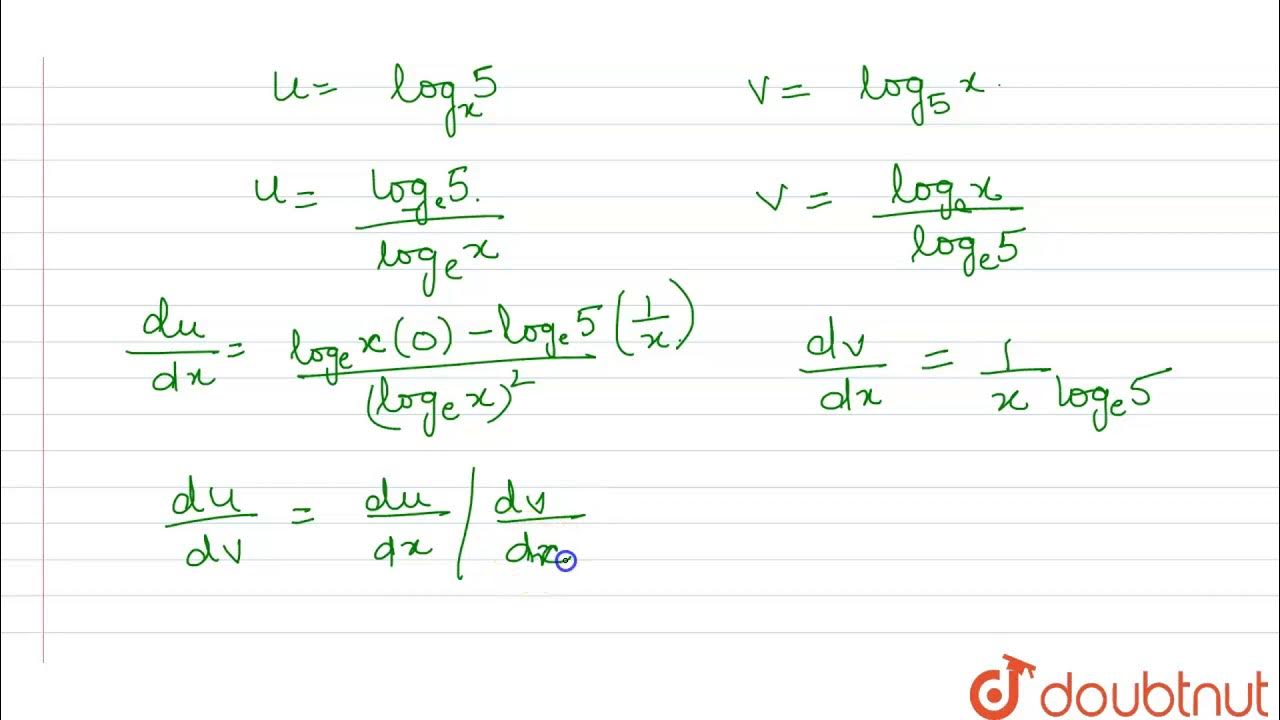 u = logₓ5 v = log₅x
u = logₑ5 / logₑx v = logₑx / logₑ5
du/dx = (logₑx(0) − logₑ5(1/x)) / (logₑx)² dv/dx = 1/x logₑ5
du/dv = du/dx / dv/dx
doubtnut